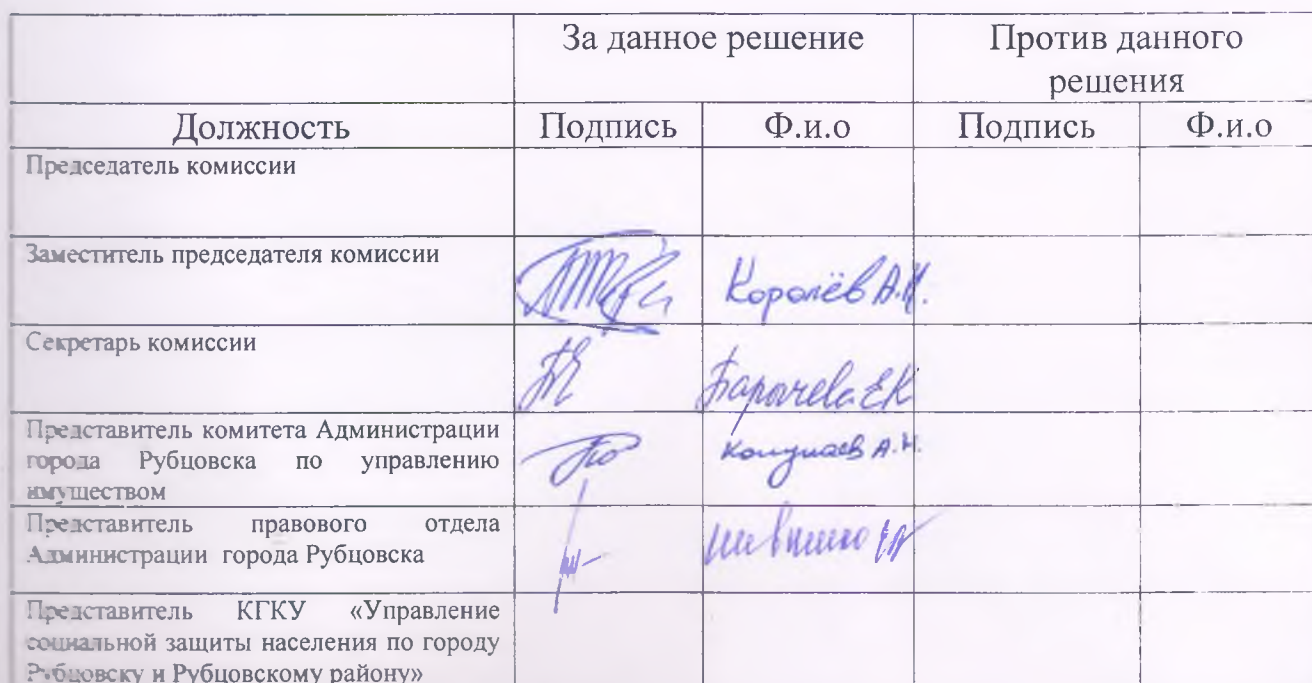 За данное решение Против данного
решения
Должность Подпись Ф.и.о Подпись Ф.и.о
Председатель комиссии
Заместитель председателя комиссии Королёв А.Н.
Секретарь комиссии
Представитель комитета Администрации
города Рубцовска по управлению
имуществом
Представитель правового отдела
Администрации города Рубцовска
Представитель КГКУ «Управление
социальной защиты населения по городу
Рубцовску и Рубцовскому району»